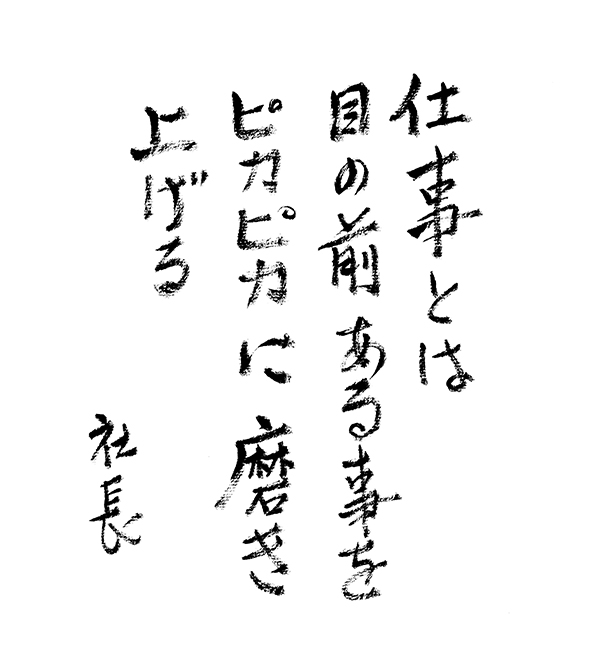 仕事とは
目の前ある事を
ピカピカに磨き
上げる
社長